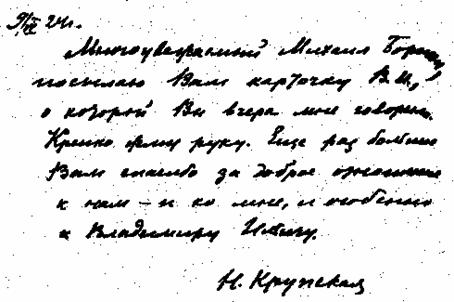 9/IX 24 г.
Многоуважаемый Михаил
посылаю Вам карточку В. И.,
о которой Вы вчера мне говорили.
Крепко жму руку. Еще раз большое
Вам спасибо за доброе отношение
к нам – и ко мне, и особенно
к Владимиру Ильичу.
Н. Крупская